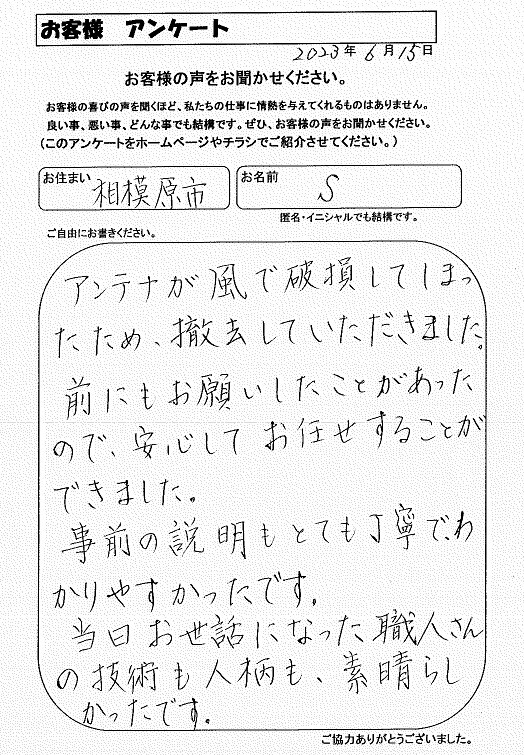 お客様 アンケート
2023年6月15日
お客様の声をお聞かせください。
お客様の喜びの声を聞くほど、私たちの仕事に情熱を与えてくれるものはありません。
良い事、悪い事、どんな事でも結構です。ぜひ、お客様の声をお聞かせください。
(このアンケートをホームページやチラシでご紹介させてください。)
お住まい 相模原市 お名前 S
匿名・イニシャルでも結構です。
ご自由にお書きください。
アンテナが風で破損してしまっ
たため、撤去していただきました。
前にもお願いしたことがあった
ので、安心してお任せすることが
できました。
事前の説明もとても丁寧で、わ
かりやすかったです。
当日お世話になった職人さん
の技術も人柄も、素晴らし
かったです。
ご協力ありがとうございました。